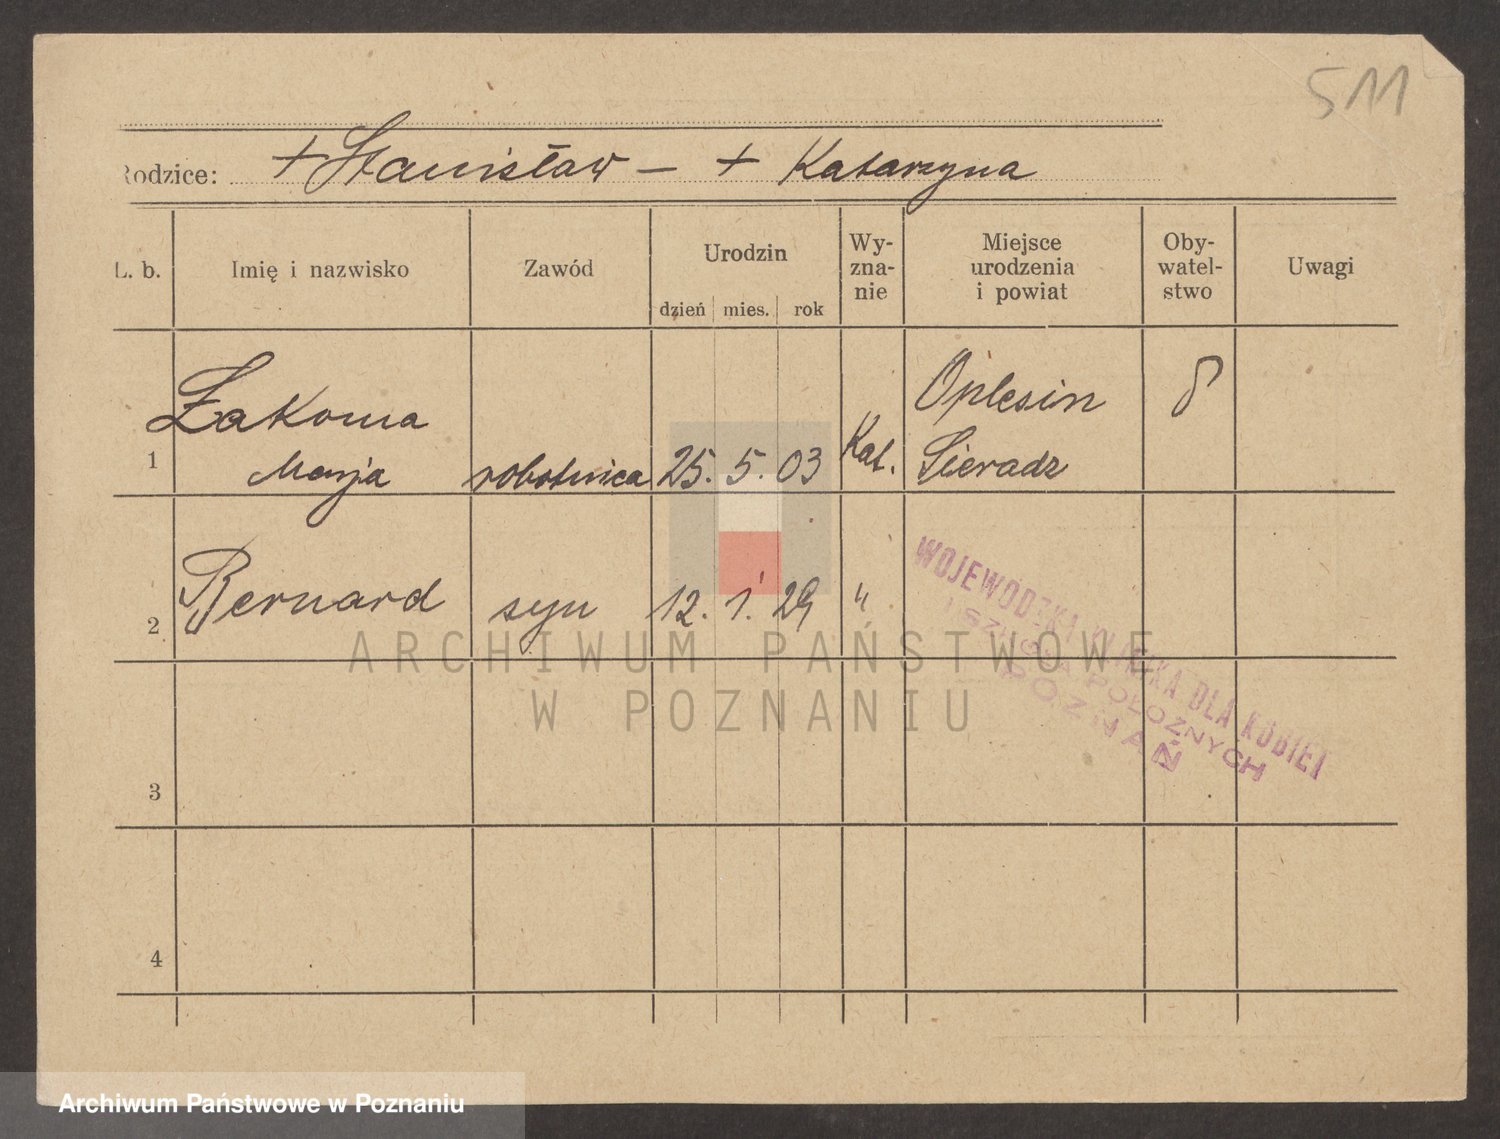 511
Rodzice: + Stanisław — + Katarzyna
L. b. Imię i nazwisko Zawód Urodzin dzień mies. rok Wy-zna-nie Miejsce urodzenia i powiat Oby-watel-stwo Uwagi
Żakoma Oplesin
1 Marja robotnica 25. 5. 03 Kat. Sieradz
2 Bernard syn 12. 1. 29 "
WOJEWÓDZKA KLINIKA DLA KOBIET
I SZKOŁA POŁOŻNYCH
POZNAŃ
ARCHIWUM PAŃSTWOWE
W POZNANIU
3
4
Archiwum Państwowe w Poznaniu